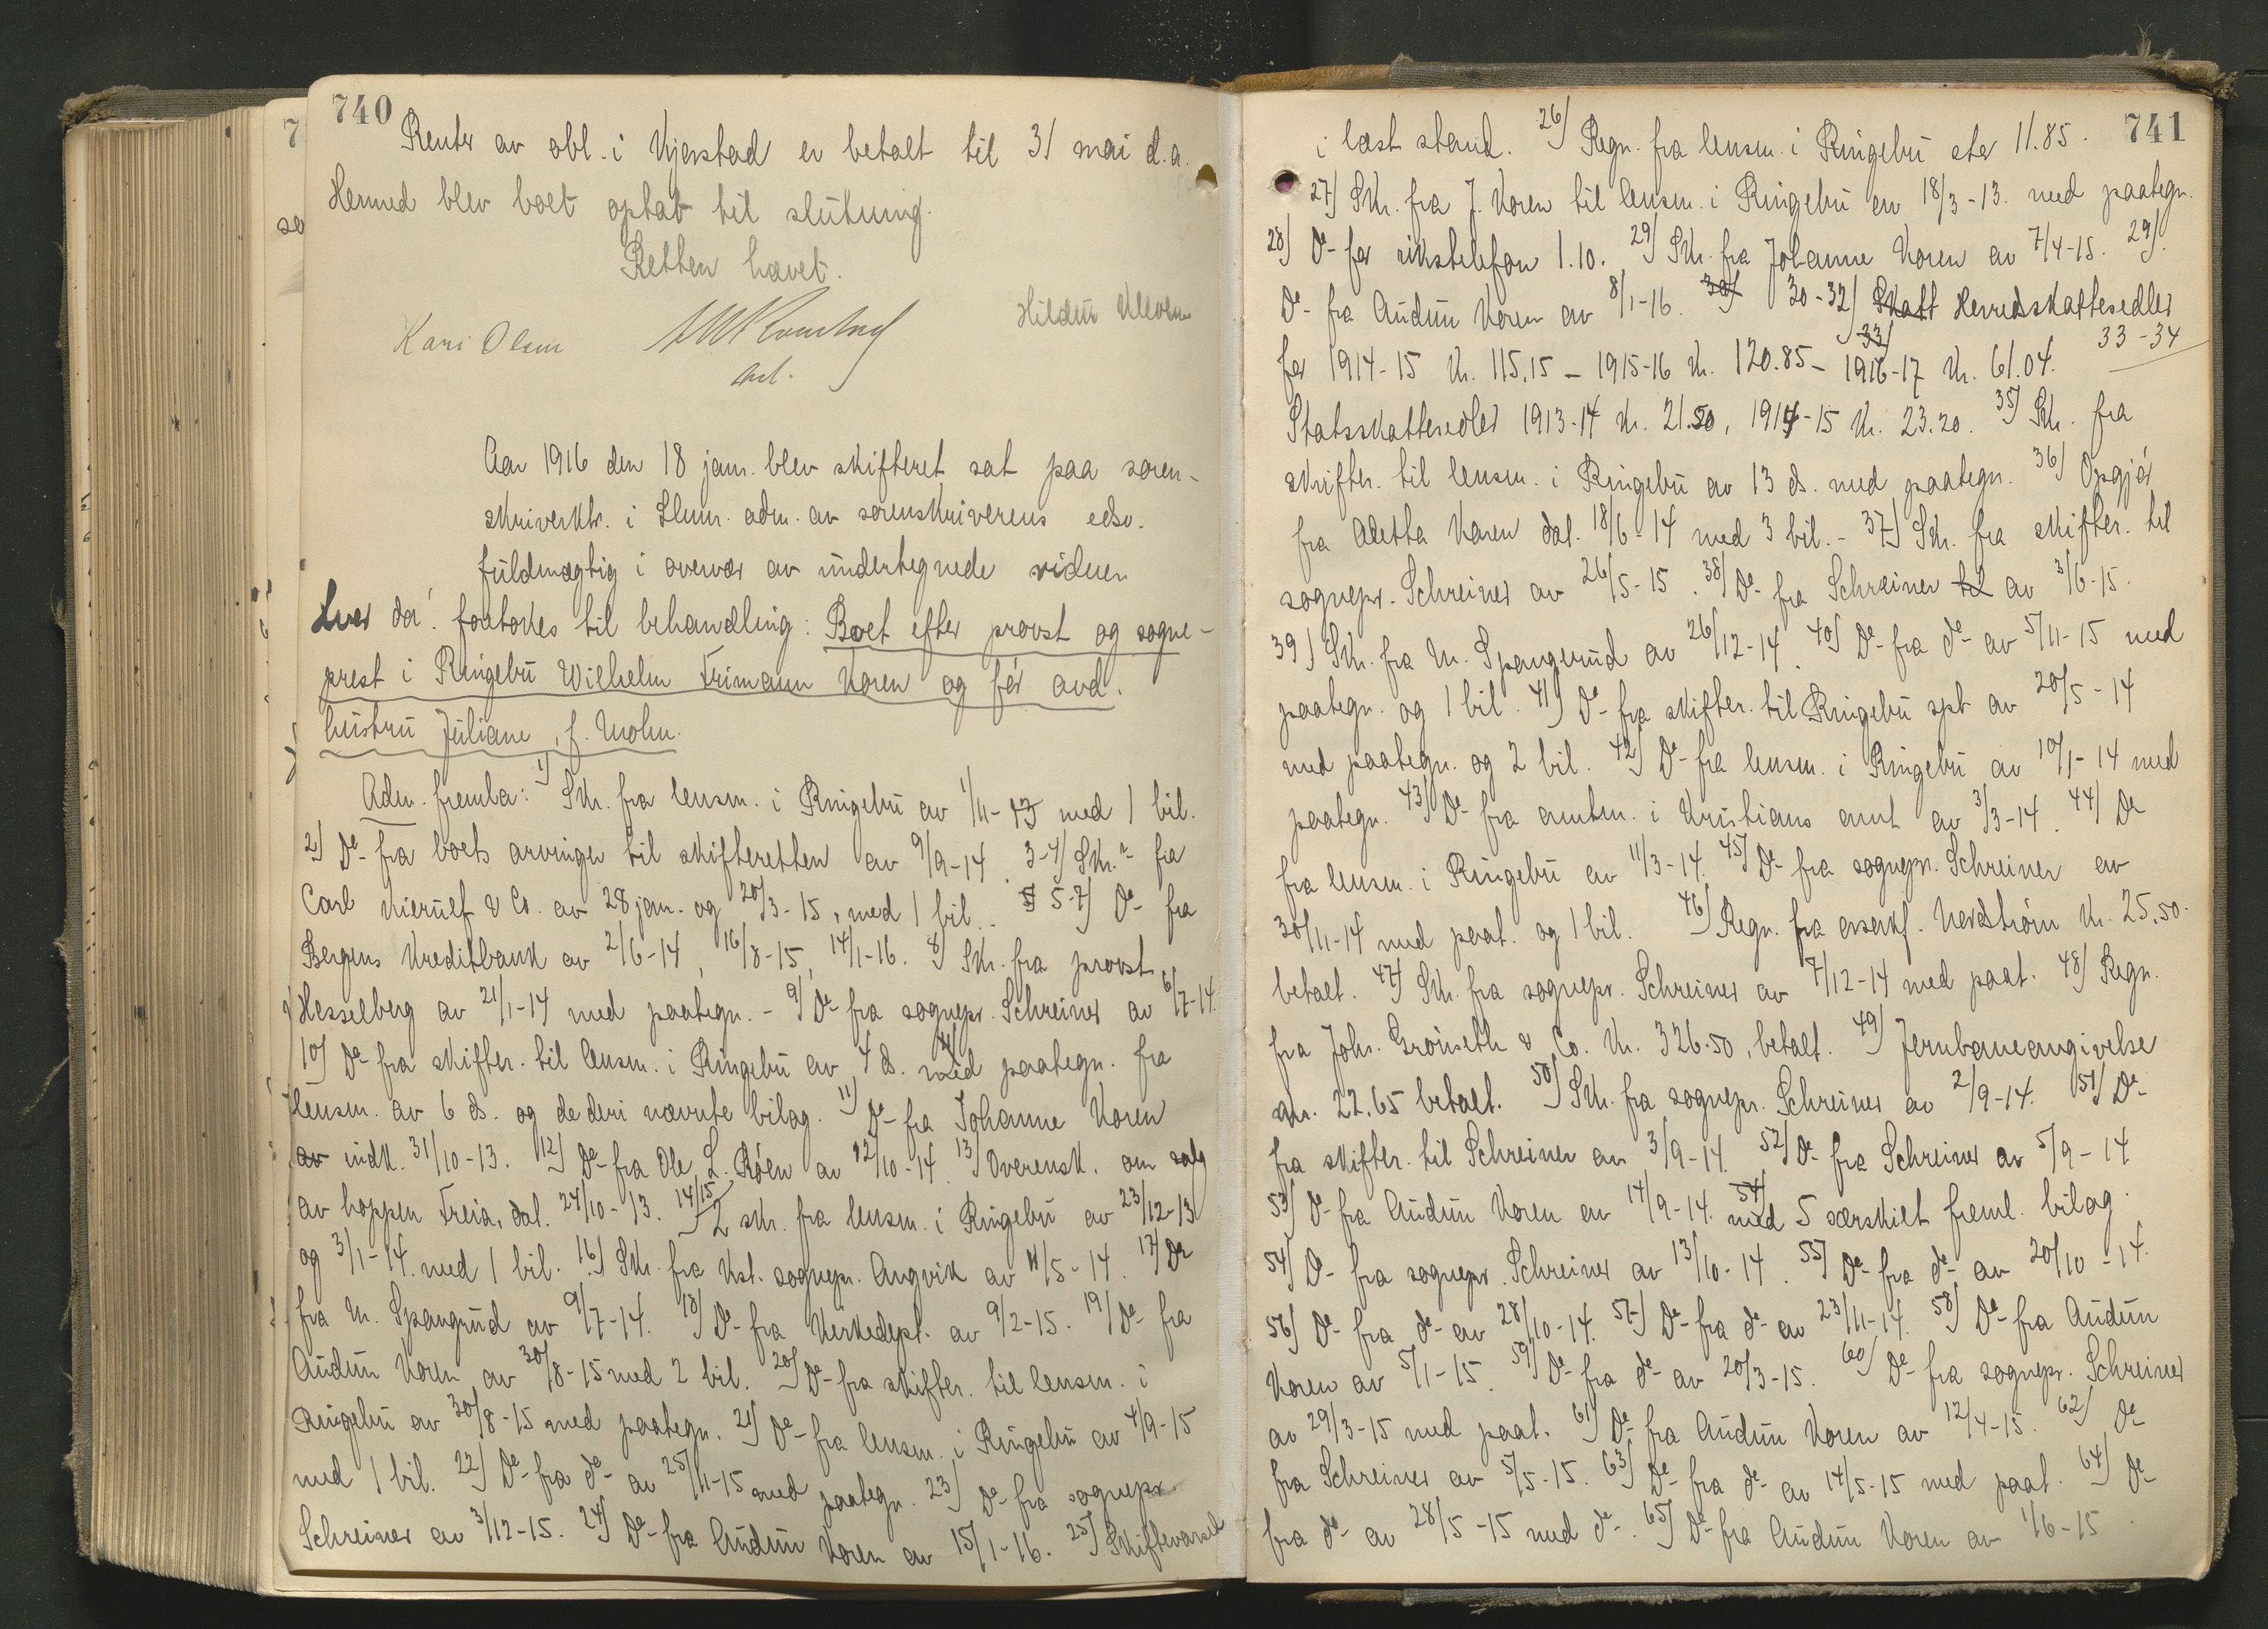 740
Renter av obl. i Kjerstad er betalt til 31 mai d.a.
Hermed blev boet optat til slutning.
Retten hævet.
Kari Olsen
Hildur Kleven
Aar 1916 den 18 jan. blev skifteret sat paa soren-
skriverktr. i Llmr. adm. av sorenskriverens edsv.
fuldmægtig i overvær av undertegnede vidner
hver da foretokes til behandling: Boet efter provst og sogne-
prest i Ringebu Wilhelm Frimann Koren og før avd.
hustru Juliane, f. Mohn.
Adm. fremla: 1) Skr. fra lensm. i Ringebu av 1/11-13 med 1 bil.
2) Do- fra boets arvinger til skifteretten av 9/9-14. 3-4) Skr. fra
Carl Kierulf & Co. av 28 jan. og 20/3-15, med 1 bil. 5-7) Do- fra
Bergens Kreditbank av 2/6-14, 16/8-15, 14/1-16. 8) Skr. fra provst
Hesselberg av 21/1-14 med paategn. - 9) Do- fra sognepr. Schreiner av 6/7-14.
10) Do- fra skifter. til lensm. i Ringebu av 4 ds. med paategn. fra
lensm. av 6 ds. og de deri nævnte bilag. 11) Do- fra Johanne Koren
av indk. 31/10-13. 12) Do- fra Ole L. Røen av 12/10-14. 13) Overensk. om salg
av hoppen Freia, dat. 24/10-13. 14/15) 2 skr. fra lensm. i Ringebu av 23/12-13
og 3/1-14. med 1 bil. 16) Skr. fra Kst. sognepr. Angvik av 11/5-14. 17) Do
fra M. Spangrud av 9/7-14. 18) Do- fra Kirkedept. av 9/2-15. 19) Do- fra
Audun Koren av 30/8-15 med 2 bil. 20) Do- fra skifter. til lensm. i
Ringebu av 30/8-15 med paategn. 21) Do- fra lensm. i Ringebu av 4/9-15
med 1 bil. 22) Do- fra do- av 25/11-15 med paategn. 23) Do- fra sognepr.
Schreiner av 3/12-15. 24) Do- fra Audun Koren av 15/1-16. 25) Skiftevarsel
741
i læst stand. 26) Regn. fra lensm. i Ringebu stor 11.85.
27) Skr. fra J. Koren til lensm. i Ringebu av 18/3-13. med paategn.
28) Do- for rikstelefon 1.10. 29) Skr. fra Johanne Koren av 7/4-15. 29)
Do- fra Audun Koren av 8/1-16. 30) 30-32) Skatt Herredskattesedler
for 1914-15 kr. 115.15 - 1915-16 kr. 120.85 - 33) 1916-17 kr. 61.04. 33-34
Statsskattesedler 1913-14 kr. 21.50, 1914-15 kr. 23.20. 35) Skr. fra
skifter. til lensm. i Ringebu av 13 ds. med paategn. 36) Opgjør
fra Aletta Koren dat. 18/6-14 med 3 bil. - 37) Skr. fra skifter. til
sognepr. Schreiner av 26/5-15. 38) Do- fra Schreiner til av 3/6-15.
39) Skr. fra M. Spangrud av 26/12-14. 40) Do- fra do- av 5/11-15 med
paategn. og 1 bil. 41) Do- fra skifter. til Ringebu spt av 20/5-14
med paategn. og 2 bil. 42) Do- fra lensm. i Ringebu av 10/1-14 med
paategn. 43) Do- fra amtm. i Kristians amt av 3/3-14. 44) Do
fra lensm. i Ringebu av 11/3-14. 45) Do- fra sognepr. Schreiner av
30/11-14 med paat. og 1 bil. 46) Regn. fra Kr. 25.50.
betalt. 47) Skr. fra sognepr. Schreiner av 7/12-14 med paat. 48) Regn.
fra Johs. Grønseth & Co. Kr. 326.50, betalt. 49) Jernbaneangivelse
22.65 betalt. 50) Skr. fra sognepr. Schreiner av 2/9-14. 51) Do-
fra skifter. til Schreiner av 3/9-14. 52) Do- fra Schreiner av 5/9-14
53) Do- fra Audun Koren av 14/9-14. 54) med 5 særskilt freml. bilag.
54) Do- fra sognepr. Schreiner av 13/10-14. 55) Do- fra do- av 20/10-14.
56) Do- fra do- av 28/10-14. 57) Do- fra do- av 23/11-14. 58) Do- fra Audun
Koren av 5/1-15. 59) Do- fra do- av 20/3-15. 60) Do- fra sognepr. Schreiner
av 29/3-15 med paat. 61) Do- fra Audun Koren av 12/4-15. 62) Do-
fra Schreiner av 5/5-15. 63) Do- fra do- av 14/5-15 med paat. 64) Do-
fra do- av 28/5-15 med do-. 65) Do- fra Audun Koren av 1/6-15